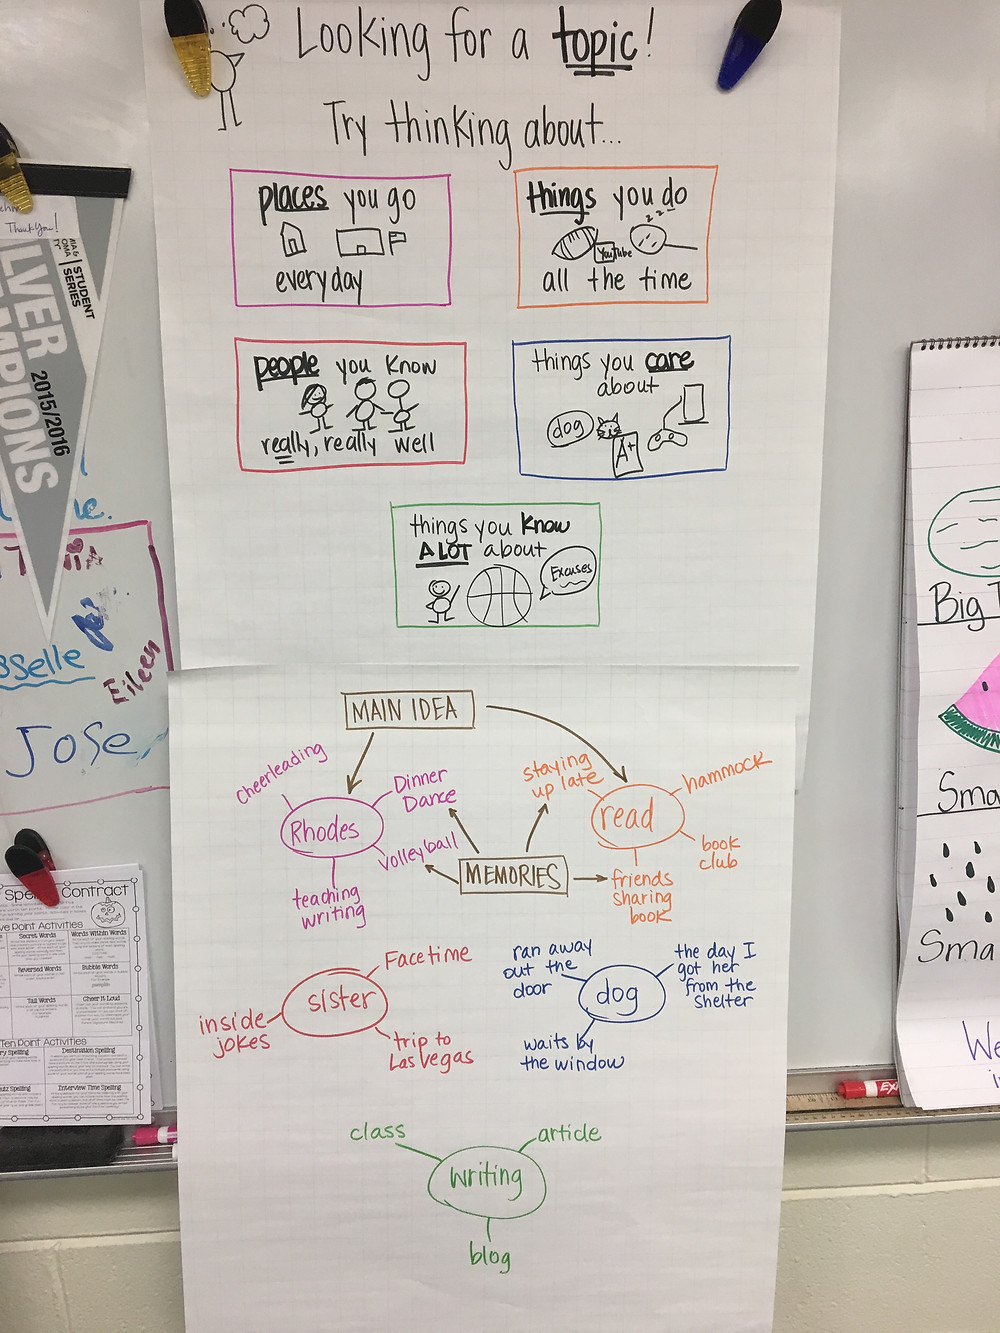 Looking for a topic!
Try thinking about...
places you go
everyday
things you do
z z z
YouTube
all the time
people you know
really, really well
things you care
about
dog
A+
things you know
A LOT about
Excuses
MAIN IDEA
Cheerleading
Dinner
Dance
Rhodes
volleyball
teaching
writing
staying
up late
hammock
read
book
club
friends
sharing
book
MEMORIES
Facetime
sister
inside
jokes
trip to
Las Vegas
ran away
out the
door
the day I
got her
from the
shelter
dog
waits by
the window
class
article
writing
blog
Thank You!
STUDENT
SERIES
2015/2016
Eileen
Jose
Contract
Point Activities
Secret Words
Words Within Words
Reversed Words
Bubble Words
Tall Words
Cheer it Loud
Ten Point Activities
Spelling
Destination Spelling
Spelling
Interview Time Spelling
Big
EXP